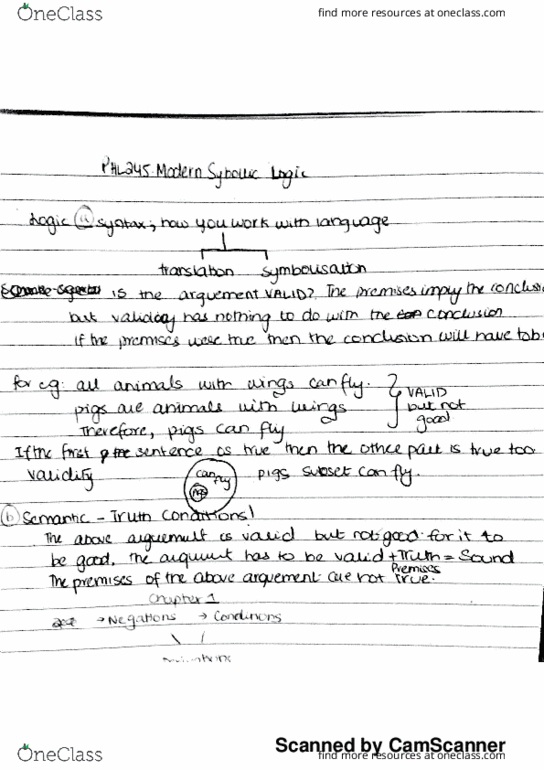 OneClass
find more resources at oneclass.com
PHL245 Modern Sybolic Logic
Logic (a) syntax; how you work with language
translation symbolisation
is the arguement VALID? The premises imply the conclusi
but validity has nothing to do with the conclusion
if the premises were true then the conclusion will have to b
for eg: all animals with wings can fly.
pigs are animals with wings
Therefore, pigs can fly
VALID
but not
good
If the first sentence is true then the other part is true too
validity
can fly
pigs
pigs subset can fly.
(b) Semantic - Truth Conditions!
The above arguemult is valid but not good for it to
be good. The arguiunt has to be valid + Truth = Sound
Premises
The premises of the above arquement are not true.
Chapter 1
→ Negations → Conditions
Scanned by CamScanner
OneClass
find more resources at oneclass.com